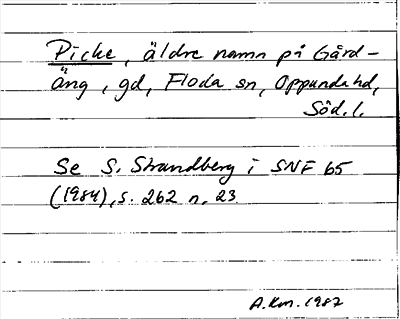 Picke, äldre namn på Gård-
äng, gd, Floda sn, Oppunda hd,
Söd. l.
Se S. Strandberg i SNF 65
(1984), s. 262 n. 23
A.Km. 1987